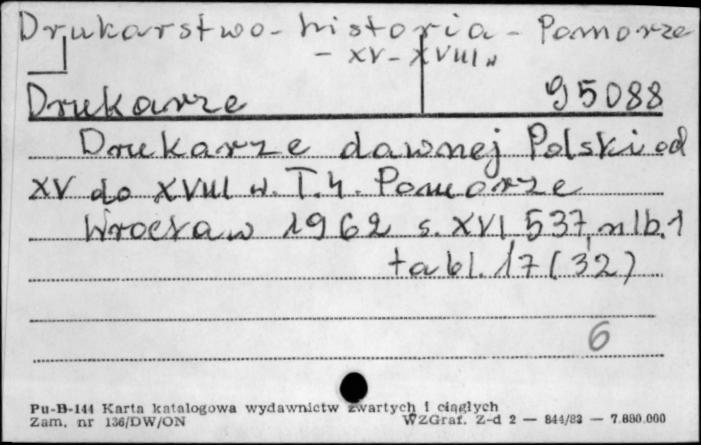 Drukarstwo - historia - Pomorze
- XV - XVIII w
Drukarze 95088
Drukarze dawnej Polski od
XV do XVIII w. T. 4. Pomorze
Wrocław 1962 s. XVI 537, nlb. 1
tabl. 17 (32)
6
Pu-B-144 Karta katalogowa wydawnictw zwartych i ciągłych
Zam. nr 136/DW/ON WZGraf. Z-d 2 — 844/83 — 7.880.000